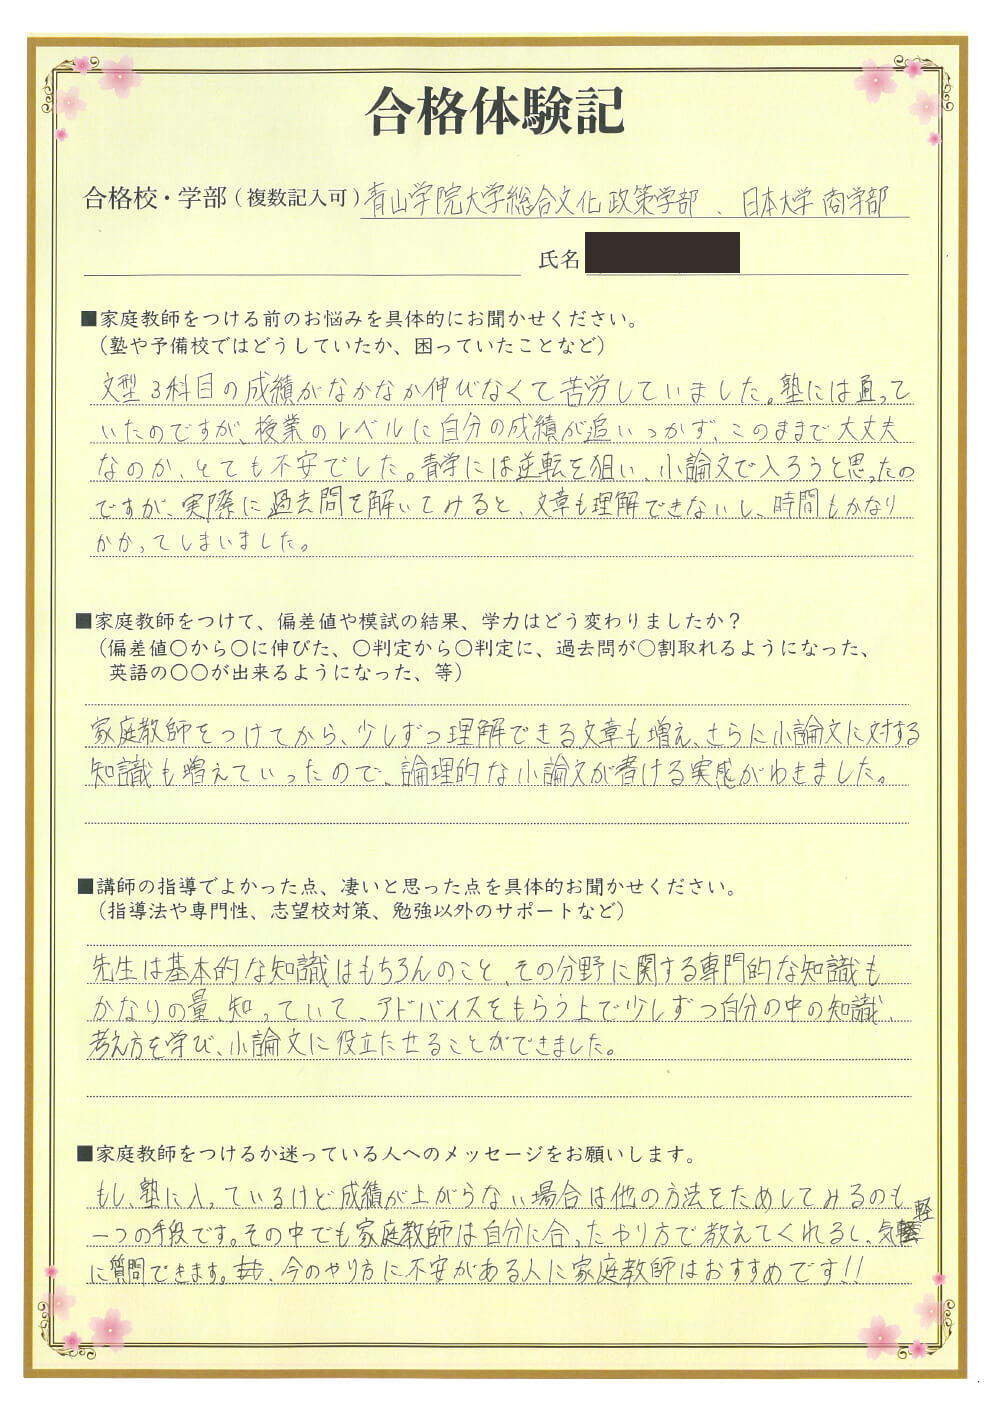 合格体験記
合格校・学部（複数記入可）青山学院大学総合文化政策学部 、日本大学 商学部
氏名
■家庭教師をつける前のお悩みを具体的にお聞かせください。
（塾や予備校ではどうしていたか、困っていたことなど）
文型3科目の成績がなかなか伸びなくて苦労していました。塾には通って
いたのですが、授業のレベルに自分の成績が追いつかず、このままで大丈夫
なのか、とても不安でした。青学には逆転を狙い、小論文で入ろうと思ったの
ですが、実際に過去問を解いてみると、文章も理解できないし、時間もかなり
かかってしまいました。
■家庭教師をつけて、偏差値や模試の結果、学力はどう変わりましたか？
（偏差値〇から〇に伸びた、〇判定から〇判定に、過去問が〇割取れるようになった、
英語の〇〇が出来るようになった、等）
家庭教師をつけてから、少しずつ理解できる文章も増え、さらに小論文に対する
知識も増えていったので、論理的な小論文が書ける実感がわきました。
■講師の指導でよかった点、凄いと思った点を具体的お聞かせください。
（指導法や専門性、志望校対策、勉強以外のサポートなど）
先生は基本的な知識はもちろんのこと、その分野に関する専門的な知識も
かなりの量、知っていて、アドバイスをもらう上で少しずつ自分の中の知識、
考え方を学び、小論文に役立たせることができました。
■家庭教師をつけるか迷っている人へのメッセージをお願いします。
もし、塾に入っているけど成績が上がらない場合は他の方法をためしてみるのも
一つの手段です。その中でも家庭教師は自分に合ったやり方で教えてくれるし、気軽
に質問できます。、今のやり方に不安がある人に家庭教師はおすすめです!!